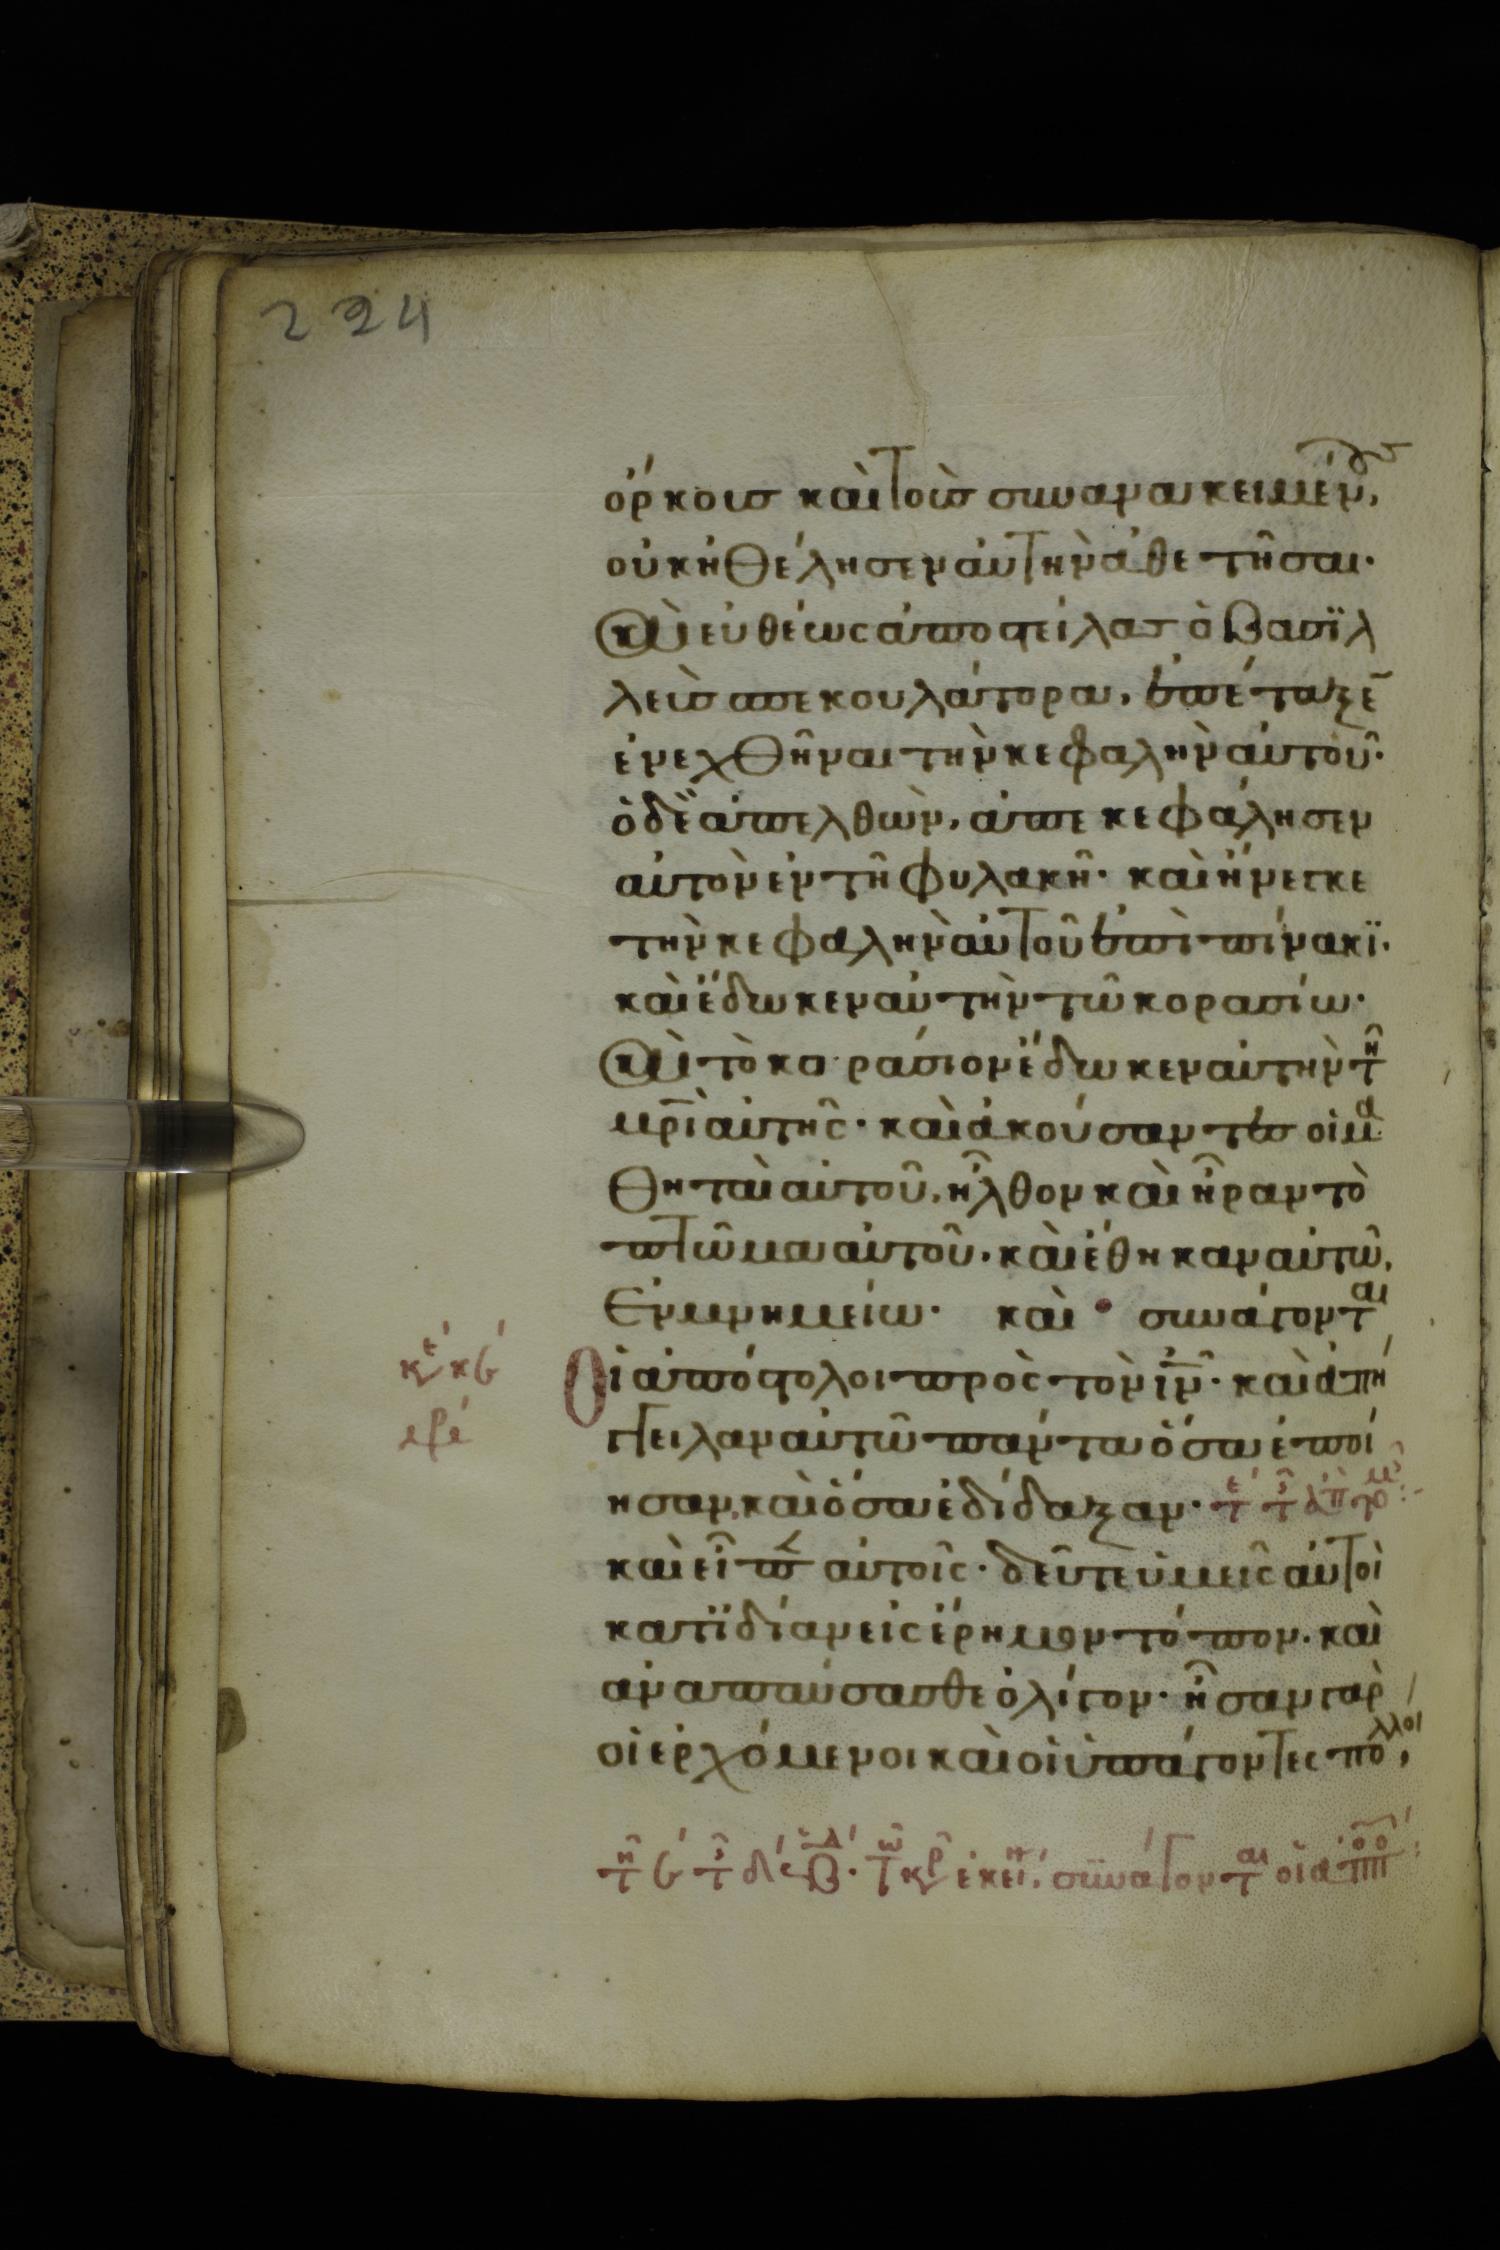 224
ὅρκους καὶ τοὺς συνανακειμένους,
οὐκ ἠθέλησεν αὐτὴν ἀθετῆσαι·
Καὶ εὐθέως ἀποστείλας ὁ βασϊλ
λεὺς σπεκουλάτορα, ἐπέταξε̄
ἐνεχθῆναι τὴν κεφαλὴν αὐτοῦ·
ὁ δὲ ἀπελθὼν, ἀπεκεφάλησεν
αὐτὸν ἐν τῆ φυλακῆ· καὶ ἤνεγκε
τὴν κεφαλὴν αὐτοῦ ἐπὶ πίνακϊ·
καὶ ἔδωκεν αὐτὴν τῶ κορασίω·
Καὶ τὸ κοράσιον ἔδωκεν αὐτὴν τῆ
μρ̅ὶ αὐτῆς· καὶ ἀκούσαντες οἱ μα
θηταὶ αὐτοῦ, ἦλθον καὶ ἦραν τὸ
πτῶμα αὐτοῦ· καὶ ἔθηκαν αὐτῶ,
Ἐν μνημείω· καὶ συνάγονται
Οἱ ἀπόστολοι πρὸς τὸν ι̅ν̅· καὶ ἀπή
γγειλαν αὐτῶ πάντα ὅσα ἐποί
ησαν, καὶ ὅσα ἐδίδαξαν·
καὶ εἶπεν αὐτοῖς· δεῦτε ὑμεῖς αὐτοὶ
κατϊδίαν εἰς ἔρημον τόπον· καὶ
ἀναπαύσασθε ὀλίγον· ἦσαν γὰρ
οἱ ἐρχόμενοι καὶ οἱ ὑπάγοντες πολλοὶ,
συνάγονται οἱ ἀπο